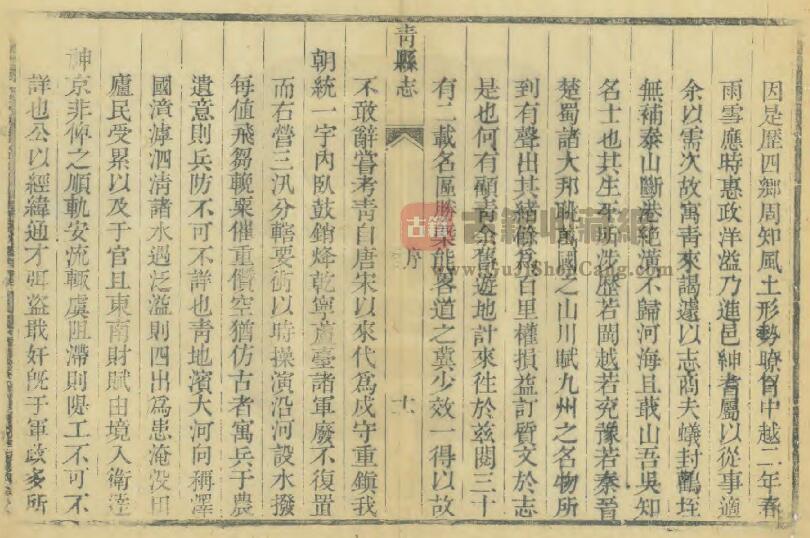 因是歷四鄉周知風土形勢瞭胷中越二年春
雨雪應時惠政洋溢乃進邑紳耆屬以從事適
余以需次故寓青來謁遽以志商夫蟻封鸛垤
無補泰山斷港絕潢不歸河海且蕺山吾吳知
名士也其生平所涉歷若閩越若兖豫若秦晉
楚蜀諸大邦眺萬國之山川賦九州之名物所
到有聲出其緒餘爲百里權損益訂質文於志
是也何有顧青余舊遊地計來徃於兹閱三十
有二載名區勝槩能畧道之冀少效一得以故
青縣志
序
十
不敢辭嘗考青自唐宋以來代爲戍守重鎮我
朝統一宇內臥鼓銷烽乾寧蘆臺諸軍廢不復置
而右營三汛分轄要衝以時操演沿河設水撥
每值飛芻輓粟催重儹空猶仿古者寓兵于農
遺意則兵防不可不詳也青地濱大河向稱澤
國漳滹泗清諸水遇泛溢則四出爲患淹没田
廬民受累以及于官且東南財賦由境入衛達
神京非俾之順軌安流輙虞阻滯則隄工不可不
詳也公以經緯通才弭盜戢奸旣于軍政多所
古籍
古籍收藏網
www.YuJiShopCang.com